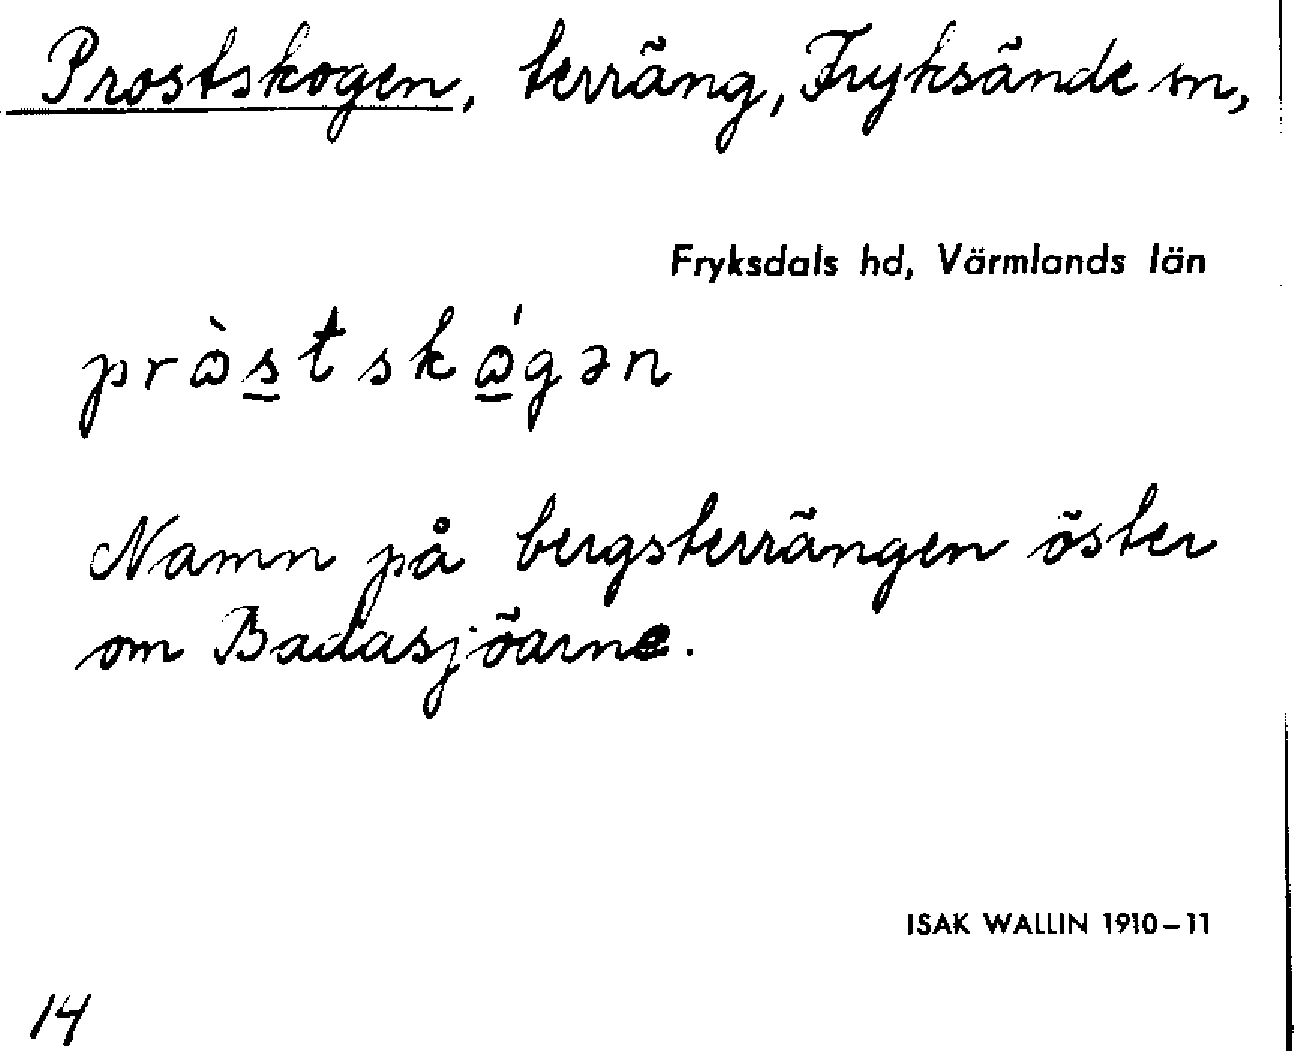 Prostskogen, terräng, Fryksände sn,
Fryksdals hd, Värmlands län
prɷ̀s̲tskɷ̲́gən
Namn på bergsterrängen öster
om Badasjöarne.
ISAK WALLIN 1910–11
14